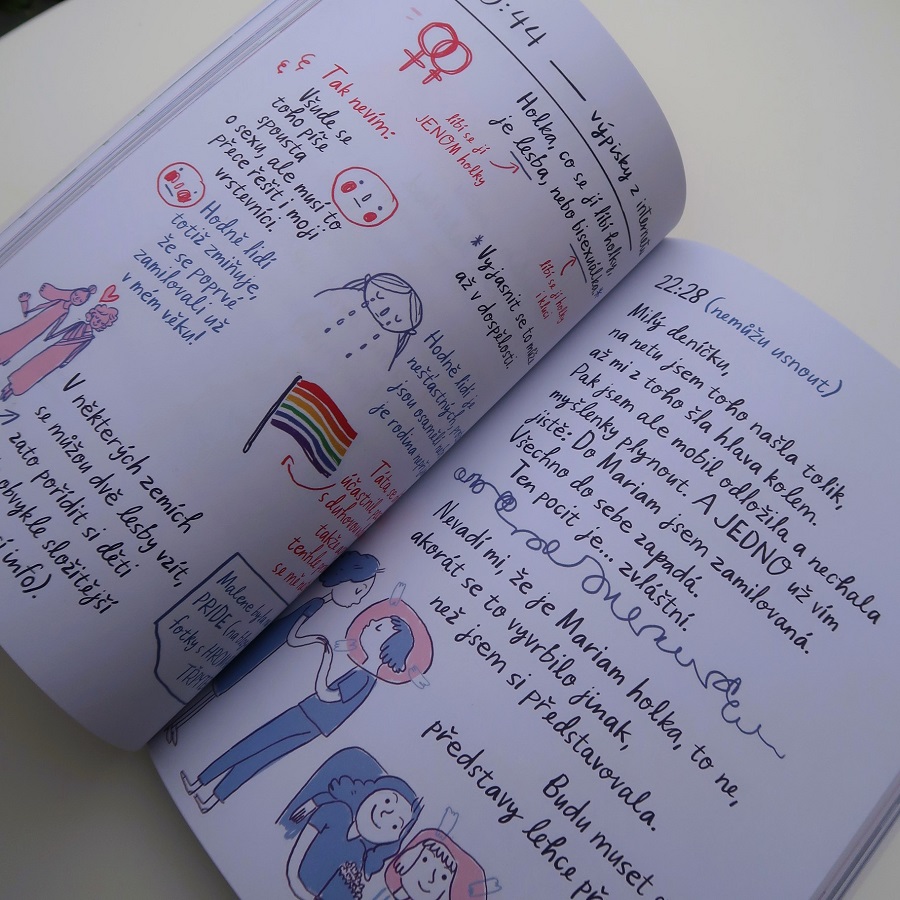 :44
výpisky z
Holka, co se jí líbí holky,
je lesba, nebo bisexuálka*
líbí se jí
JENOM holky
líbí se jí holky
i kluci
* Vyjasnit se to může
až v dospělosti.
Tak nevím:
Všude se
toho píše
spousta
o sexu, ale musí to
přece řešit i moji
vrstevníci.
Hodně lidí
totiž zmiňuje,
že se poprvé
zamilovali už
v mém věku!
Hodně lidí je
nešťastných,
jsou osamělí
je rodina
V některých zemích
se můžou dvě lesby vzít,
zato pořídit si děti
obvykle složitější
info).
Táta se
účastnil
s duhovou
takže
tenhle
se mě
Malene byla
PRIDE
fotky s
22:28 (nemůžu usnout)
Milý deníčku,
na netu jsem toho našla tolik,
až mi z toho šla hlava kolem.
Pak jsem ale mobil odložila a nechala
myšlenky plynout. A JEDNO už vím
jistě: Do Mariam jsem zamilovaná.
Všechno do sebe zapadá.
Ten pocit je... zvláštní.
Nevadí mi, že je Mariam holka, to ne,
akorát se to vyvrbilo jinak,
než jsem si představovala.
Budu muset
představy lehce